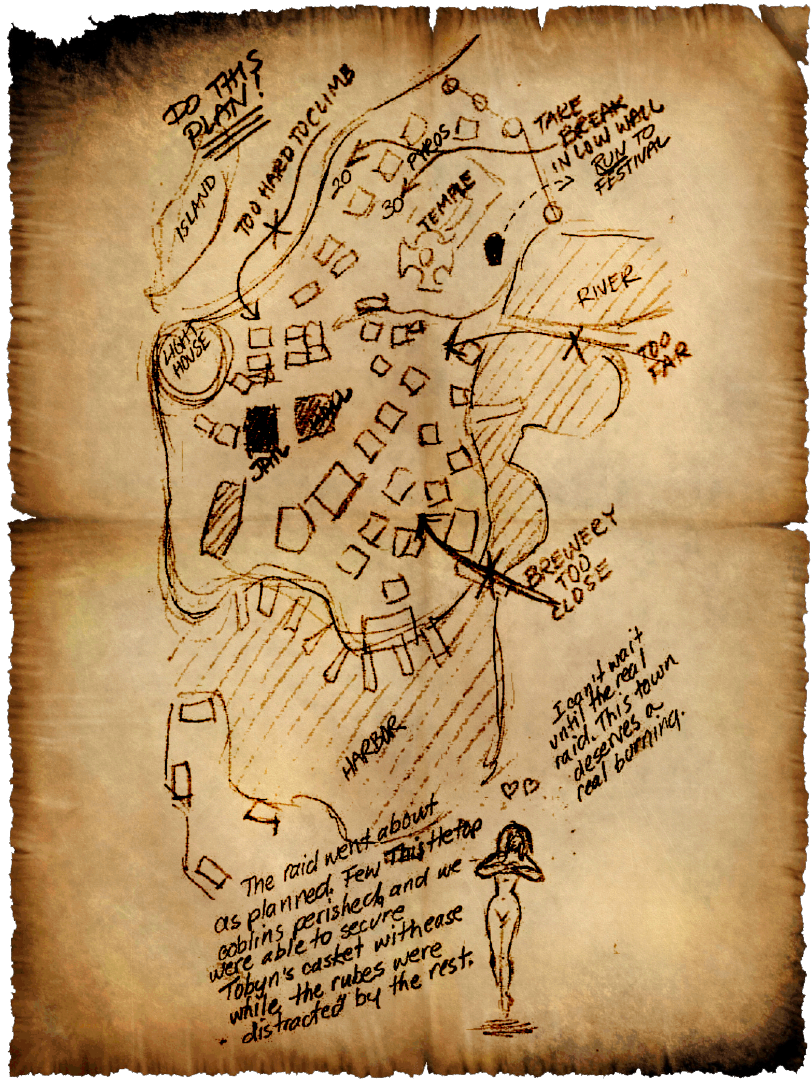 DO THIS
PLAN!
TOO HARD TO CLIMB
ISLAND
20
30
PYROS
TEMPLE
TAKE
BREAK
IN LOW WALL
RUN TO
FESTIVAL
RIVER
LIGHT
HOUSE
TOO
FAR
JAIL
BREWERY
TOO
CLOSE
HARBOR
I can't wait
until the real
raid. This town
deserves a
real burning.
The raid went about
as planned. Few Thistletop
goblins perished, and we
were able to secure
Tobyn's casket with ease
while the rubes were
distracted by the rest.